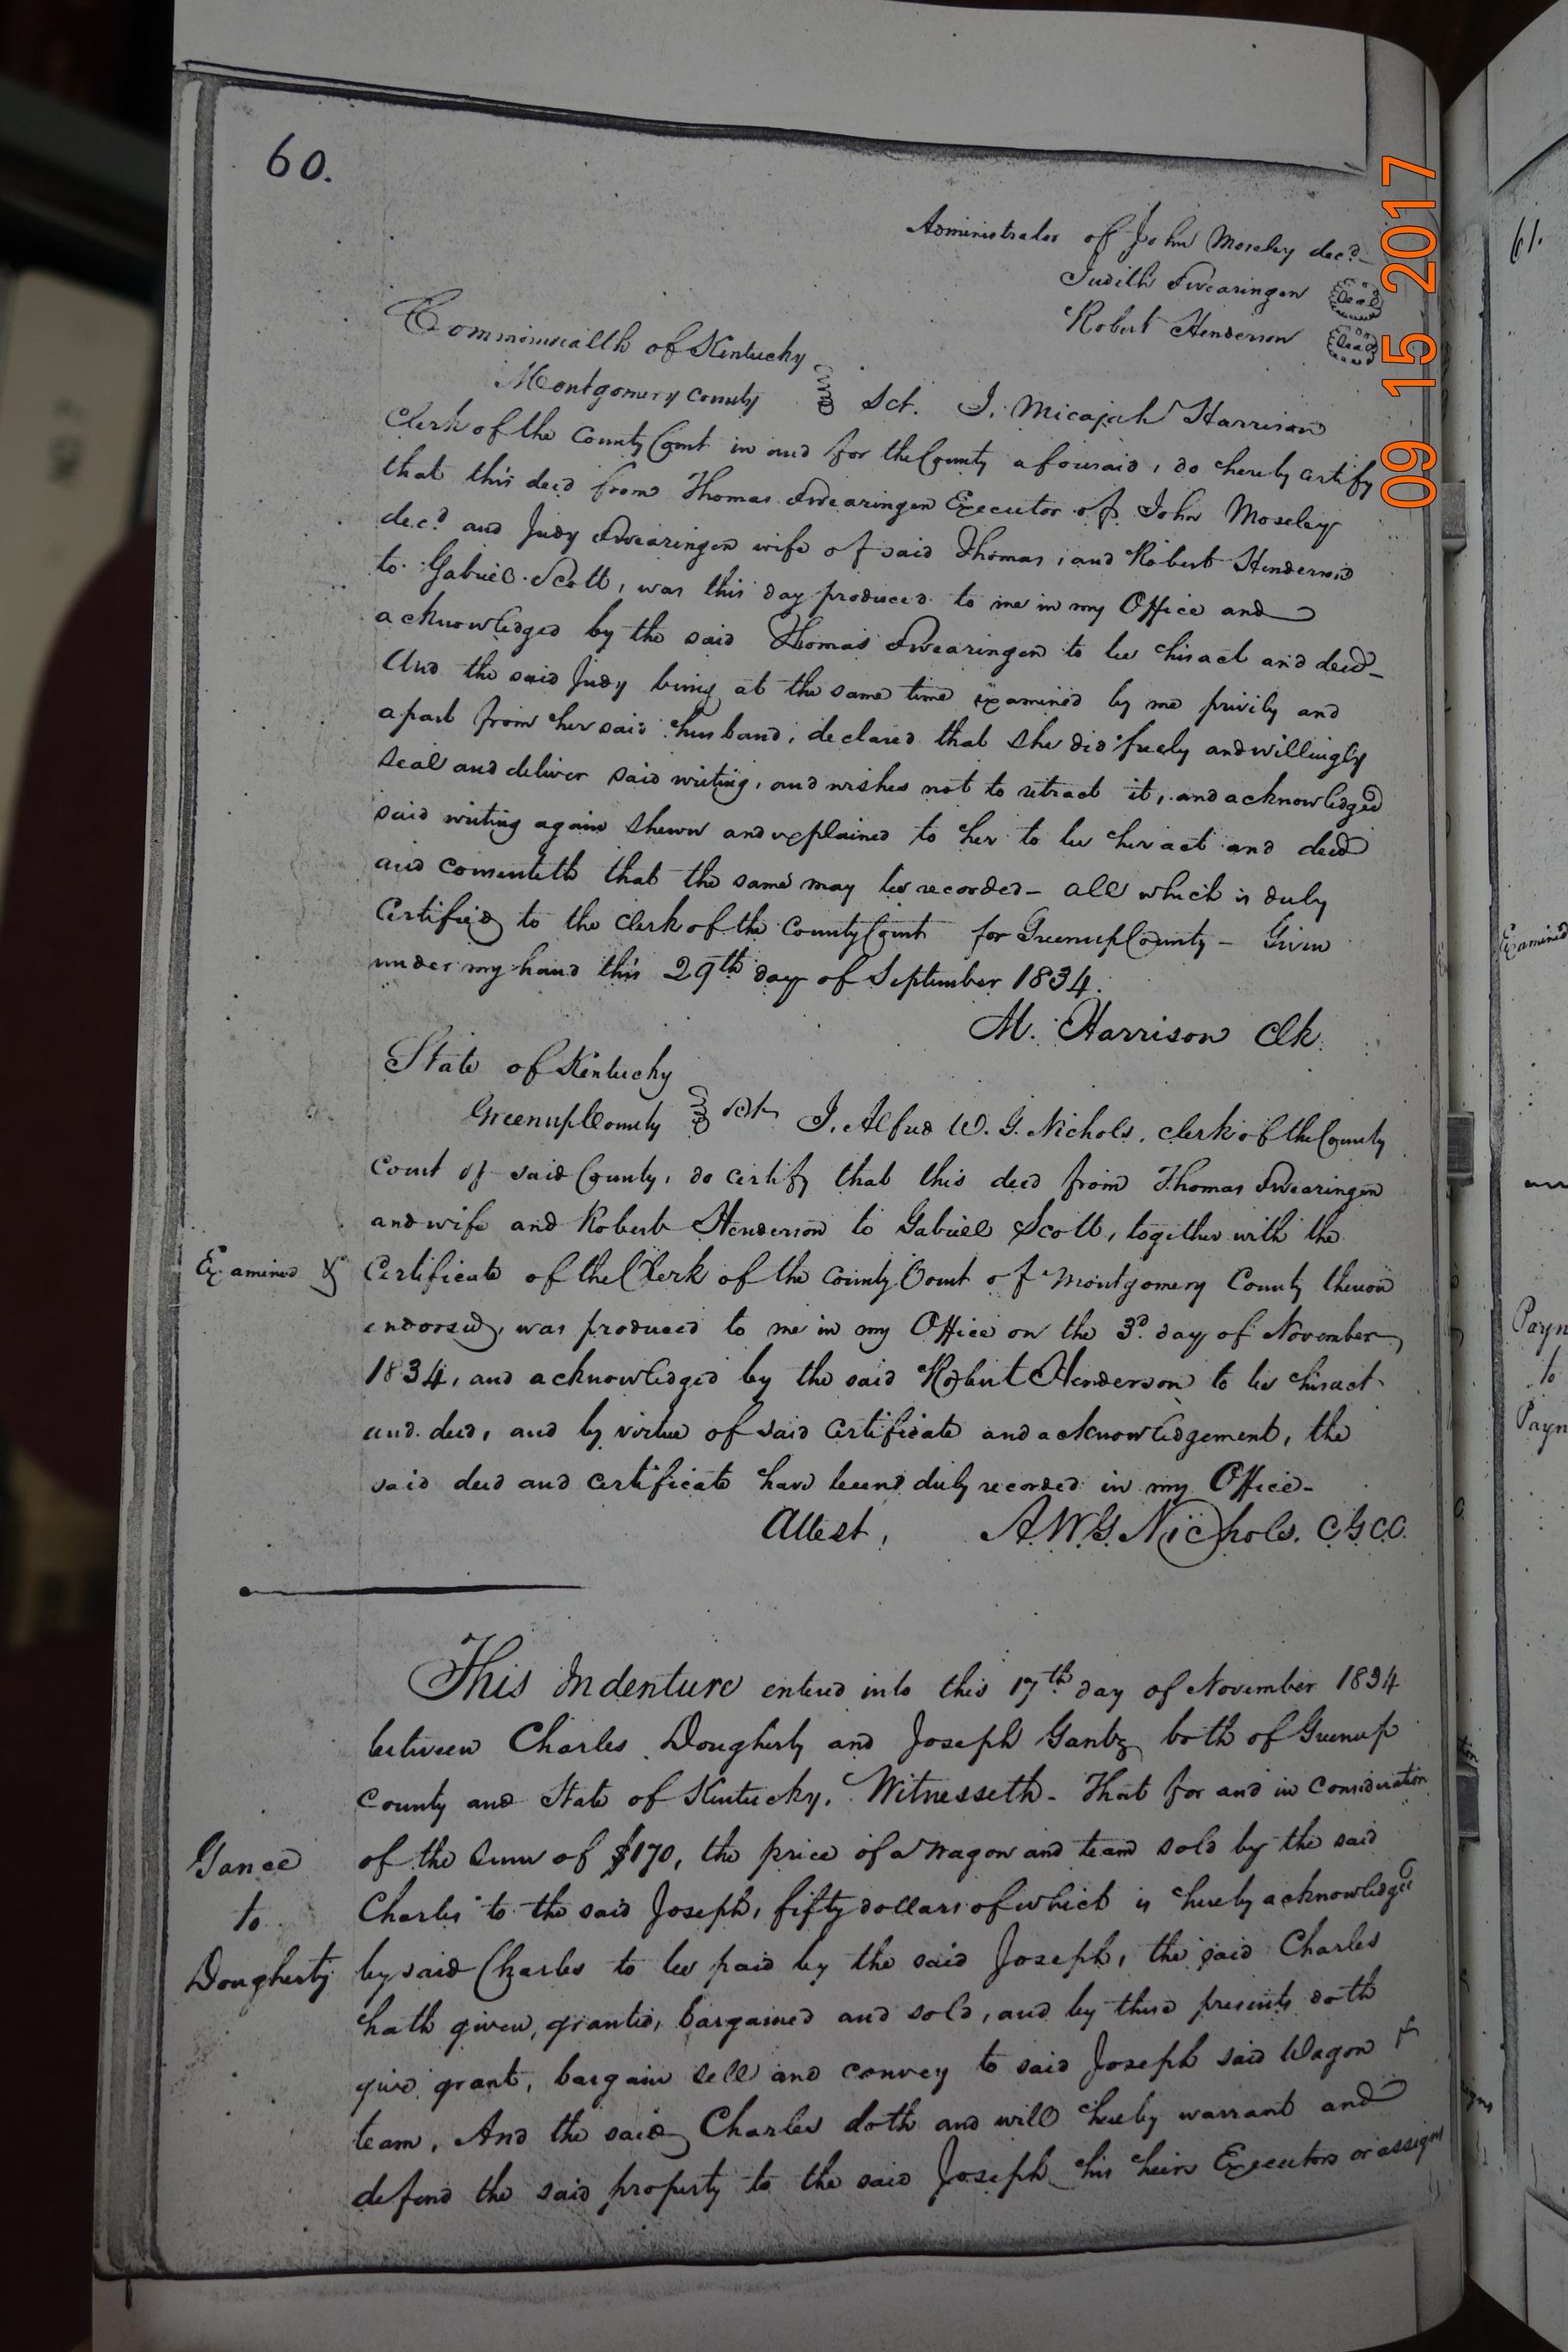 60.
Administrator of John Moseley decd.
Judith Swearingen Seal
Robert Henderson Seal
Commonwealth of Kentucky
Montgomery County Sct. I, Micajah Harrison
Clerk of the County Court in and for the County aforesaid, do hereby certify
that this deed from Thomas Swearingen Executor of John Moseley
decd and Judy Swearingen wife of said Thomas, and Robert Henderson
to Gabriel Scott, was this day produced to me in my Office and
acknowledged by the said Thomas Swearingen to be his act and deed_
And the said Judy being at the same time examined by me privily and
apart from her said husband, declared that she did freely and willingly
seal and deliver said writing, and wishes not to retract it, and acknowledged
said writing again shewn and explained to her to be her act and deed
and consenteth that the same may be recorded - all which is duly
Certified to the Clerk of the County Court for Greenup County - Given
under my hand this 29th day of September 1834.
M. Harrison Clk.
State of Kentucky
Greenup County Sct I, Alfred W. G. Nichols, clerk of the County
Court of said County, do certify that this deed from Thomas Swearingen
and wife and Robert Henderson to Gabriel Scott, together with the
Examined
Certificate of the Clerk of the County Court of Montgomery County thereon
endorsed, was produced to me in my Office on the 3d. day of November
1834, and acknowledged by the said Robert Henderson to be his act
and deed, and by virtue of said Certificate and acknowledgement, the
said deed and certificate have been duly recorded in my Office-
Attest, A.W.G. Nichols. C.G.C.C.
This Indenture entered into this 17th day of November 1834
between Charles Dougherty and Joseph Gantz both of Greenup
County and State of Kentucky, Witnesseth - That for and in consideration
Gance
to
Dougherty
of the sum of $170, the price of a wagon and team sold by the said
Charles to the said Joseph, fifty dollars of which is hereby acknowledged
by said Charles to be paid by the said Joseph, the said Charles
hath given, granted, bargained and sold, and by these presents doth
give, grant, bargain sell and convey to said Joseph said Wagon &
team, And the said Charles doth and will hereby warrant and
defend the said property to the said Joseph his heirs Executors or assigns
61.
Examined
Payn
to
Payn
09 15 2017